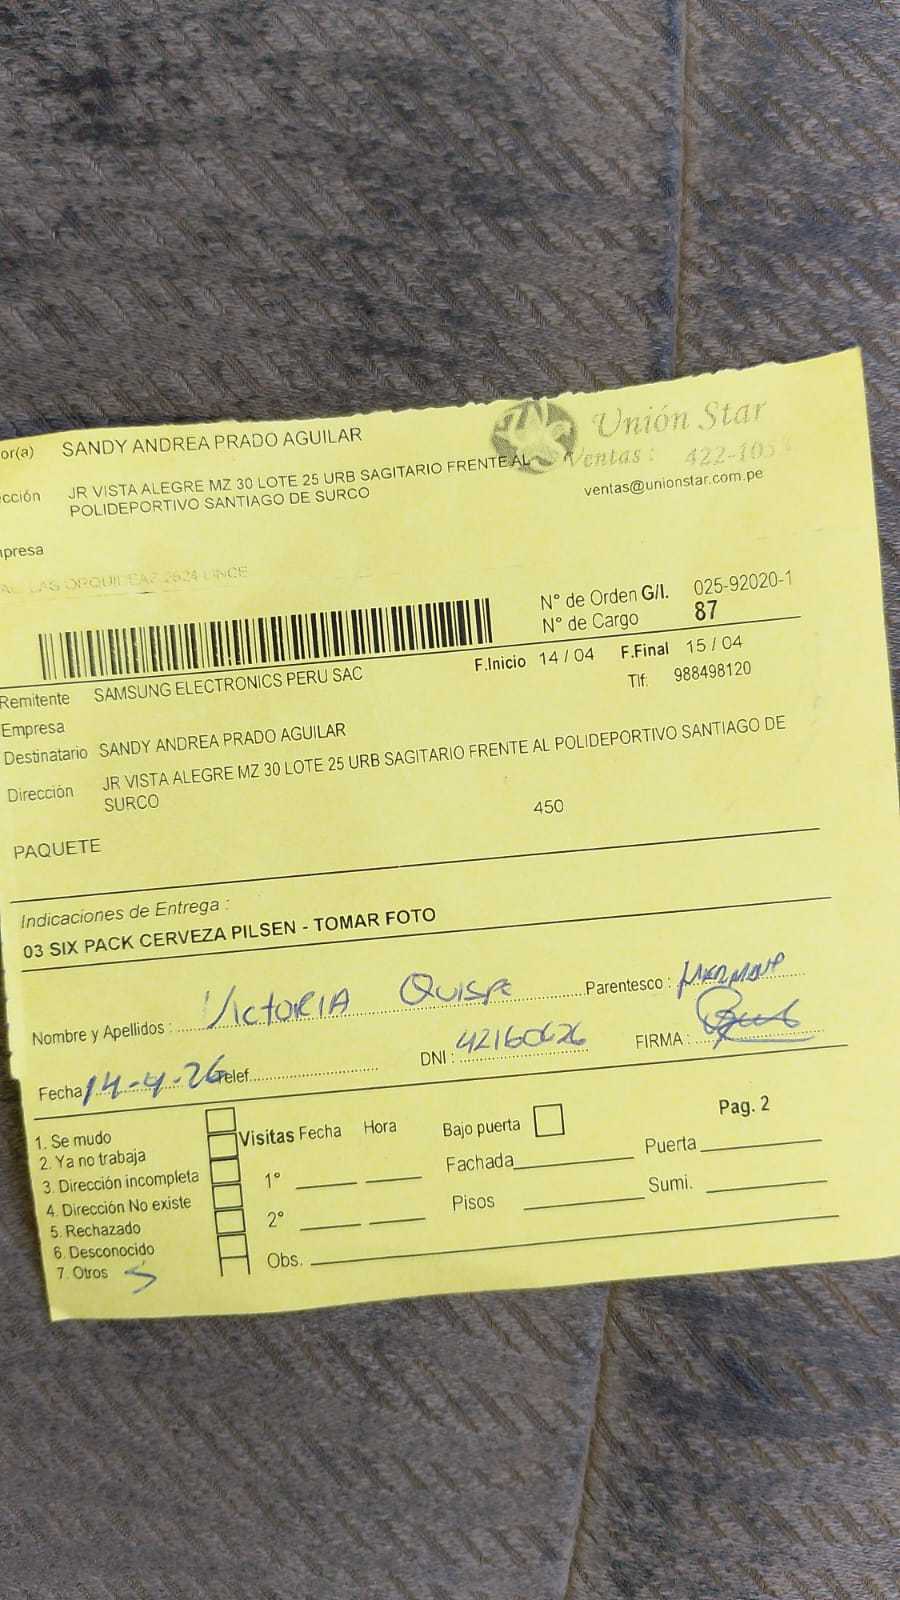 or(a) SANDY ANDREA PRADO AGUILAR
Unión Star
Ventas : 422-105
ventas@unionstar.com.pe
cción JR VISTA ALEGRE MZ 30 LOTE 25 URB SAGITARIO FRENTE AL
POLIDEPORTIVO SANTIAGO DE SURCO
mpresa
LAS ORQUIDEAZ 2624 LINCE
N° de Orden G/I. 025-92020-1
N° de Cargo 87
F.Inicio 14 / 04 F.Final 15 / 04
Remitente SAMSUNG ELECTRONICS PERU SAC
Tlf: 988498120
Empresa
Destinatario SANDY ANDREA PRADO AGUILAR
Dirección JR VISTA ALEGRE MZ 30 LOTE 25 URB SAGITARIO FRENTE AL POLIDEPORTIVO SANTIAGO DE
SURCO
450
PAQUETE
Indicaciones de Entrega :
03 SIX PACK CERVEZA PILSEN - TOMAR FOTO
Nombre y Apellidos : VICTORIA QUISPE Parentesco :
Fecha 14-4-26 Telef. DNI : 42160626 FIRMA :
1. Se mudo
2. Ya no trabaja
3. Dirección incompleta
4. Dirección No existe
5. Rechazado
6. Desconocido
7. Otros
Visitas Fecha Hora
1°
2°
Obs.
Bajo puerta
Fachada
Pisos
Pag. 2
Puerta
Sumi.